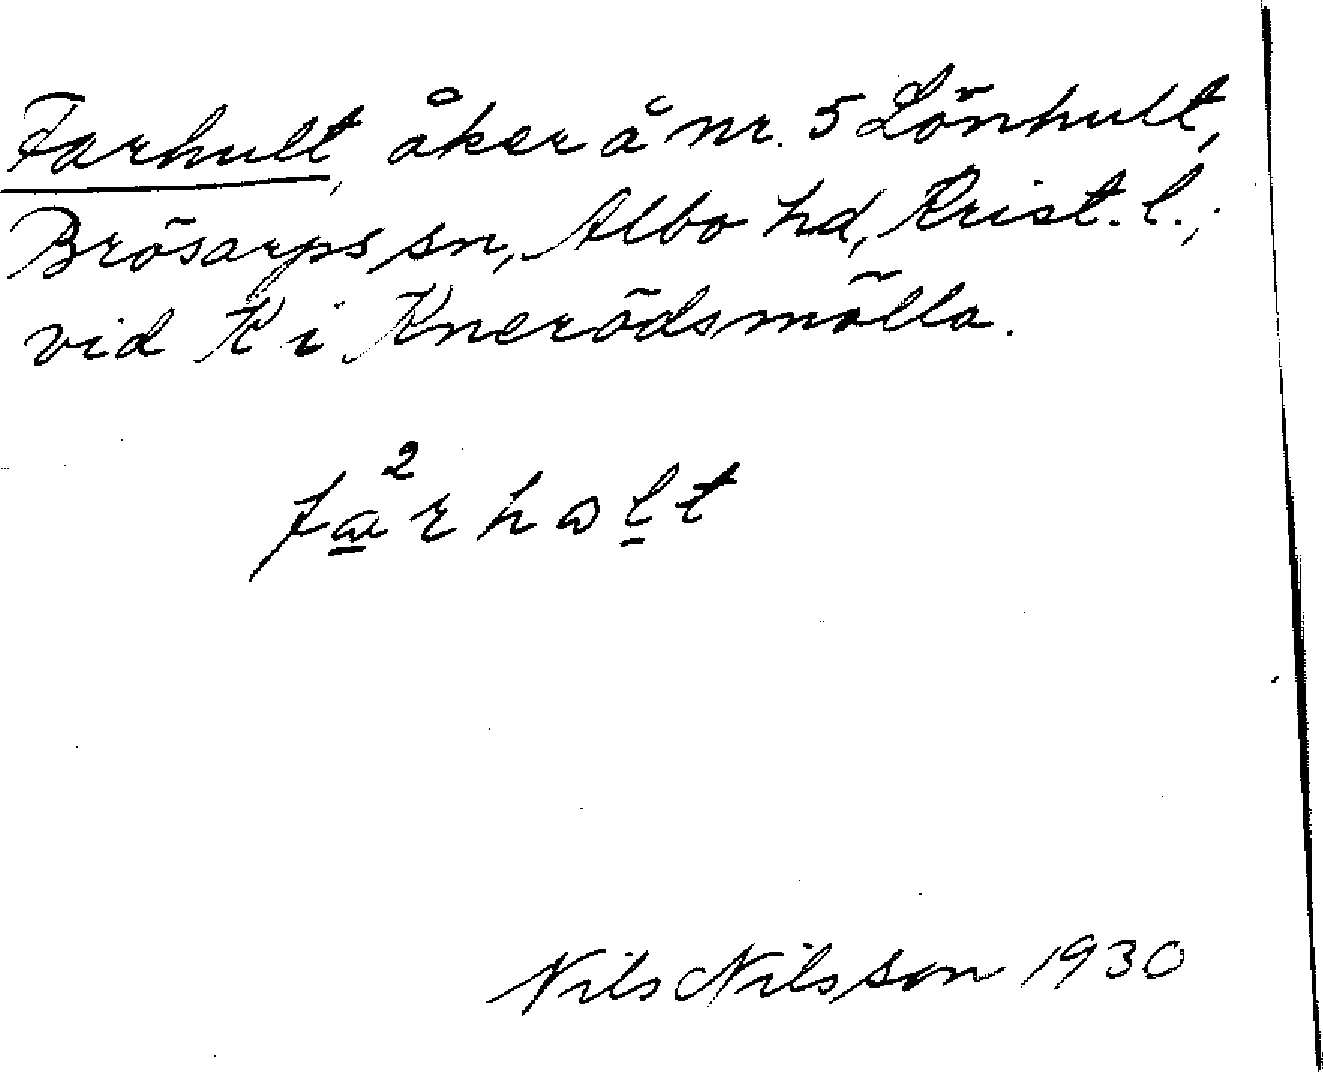 Farhult, åker å nr. 5 Lönhult,
Brösarps sn, Albo hd, Krist. l.;
vid K i Knerödsmölla.
fa²rhalt
Nils Nilsson 1930